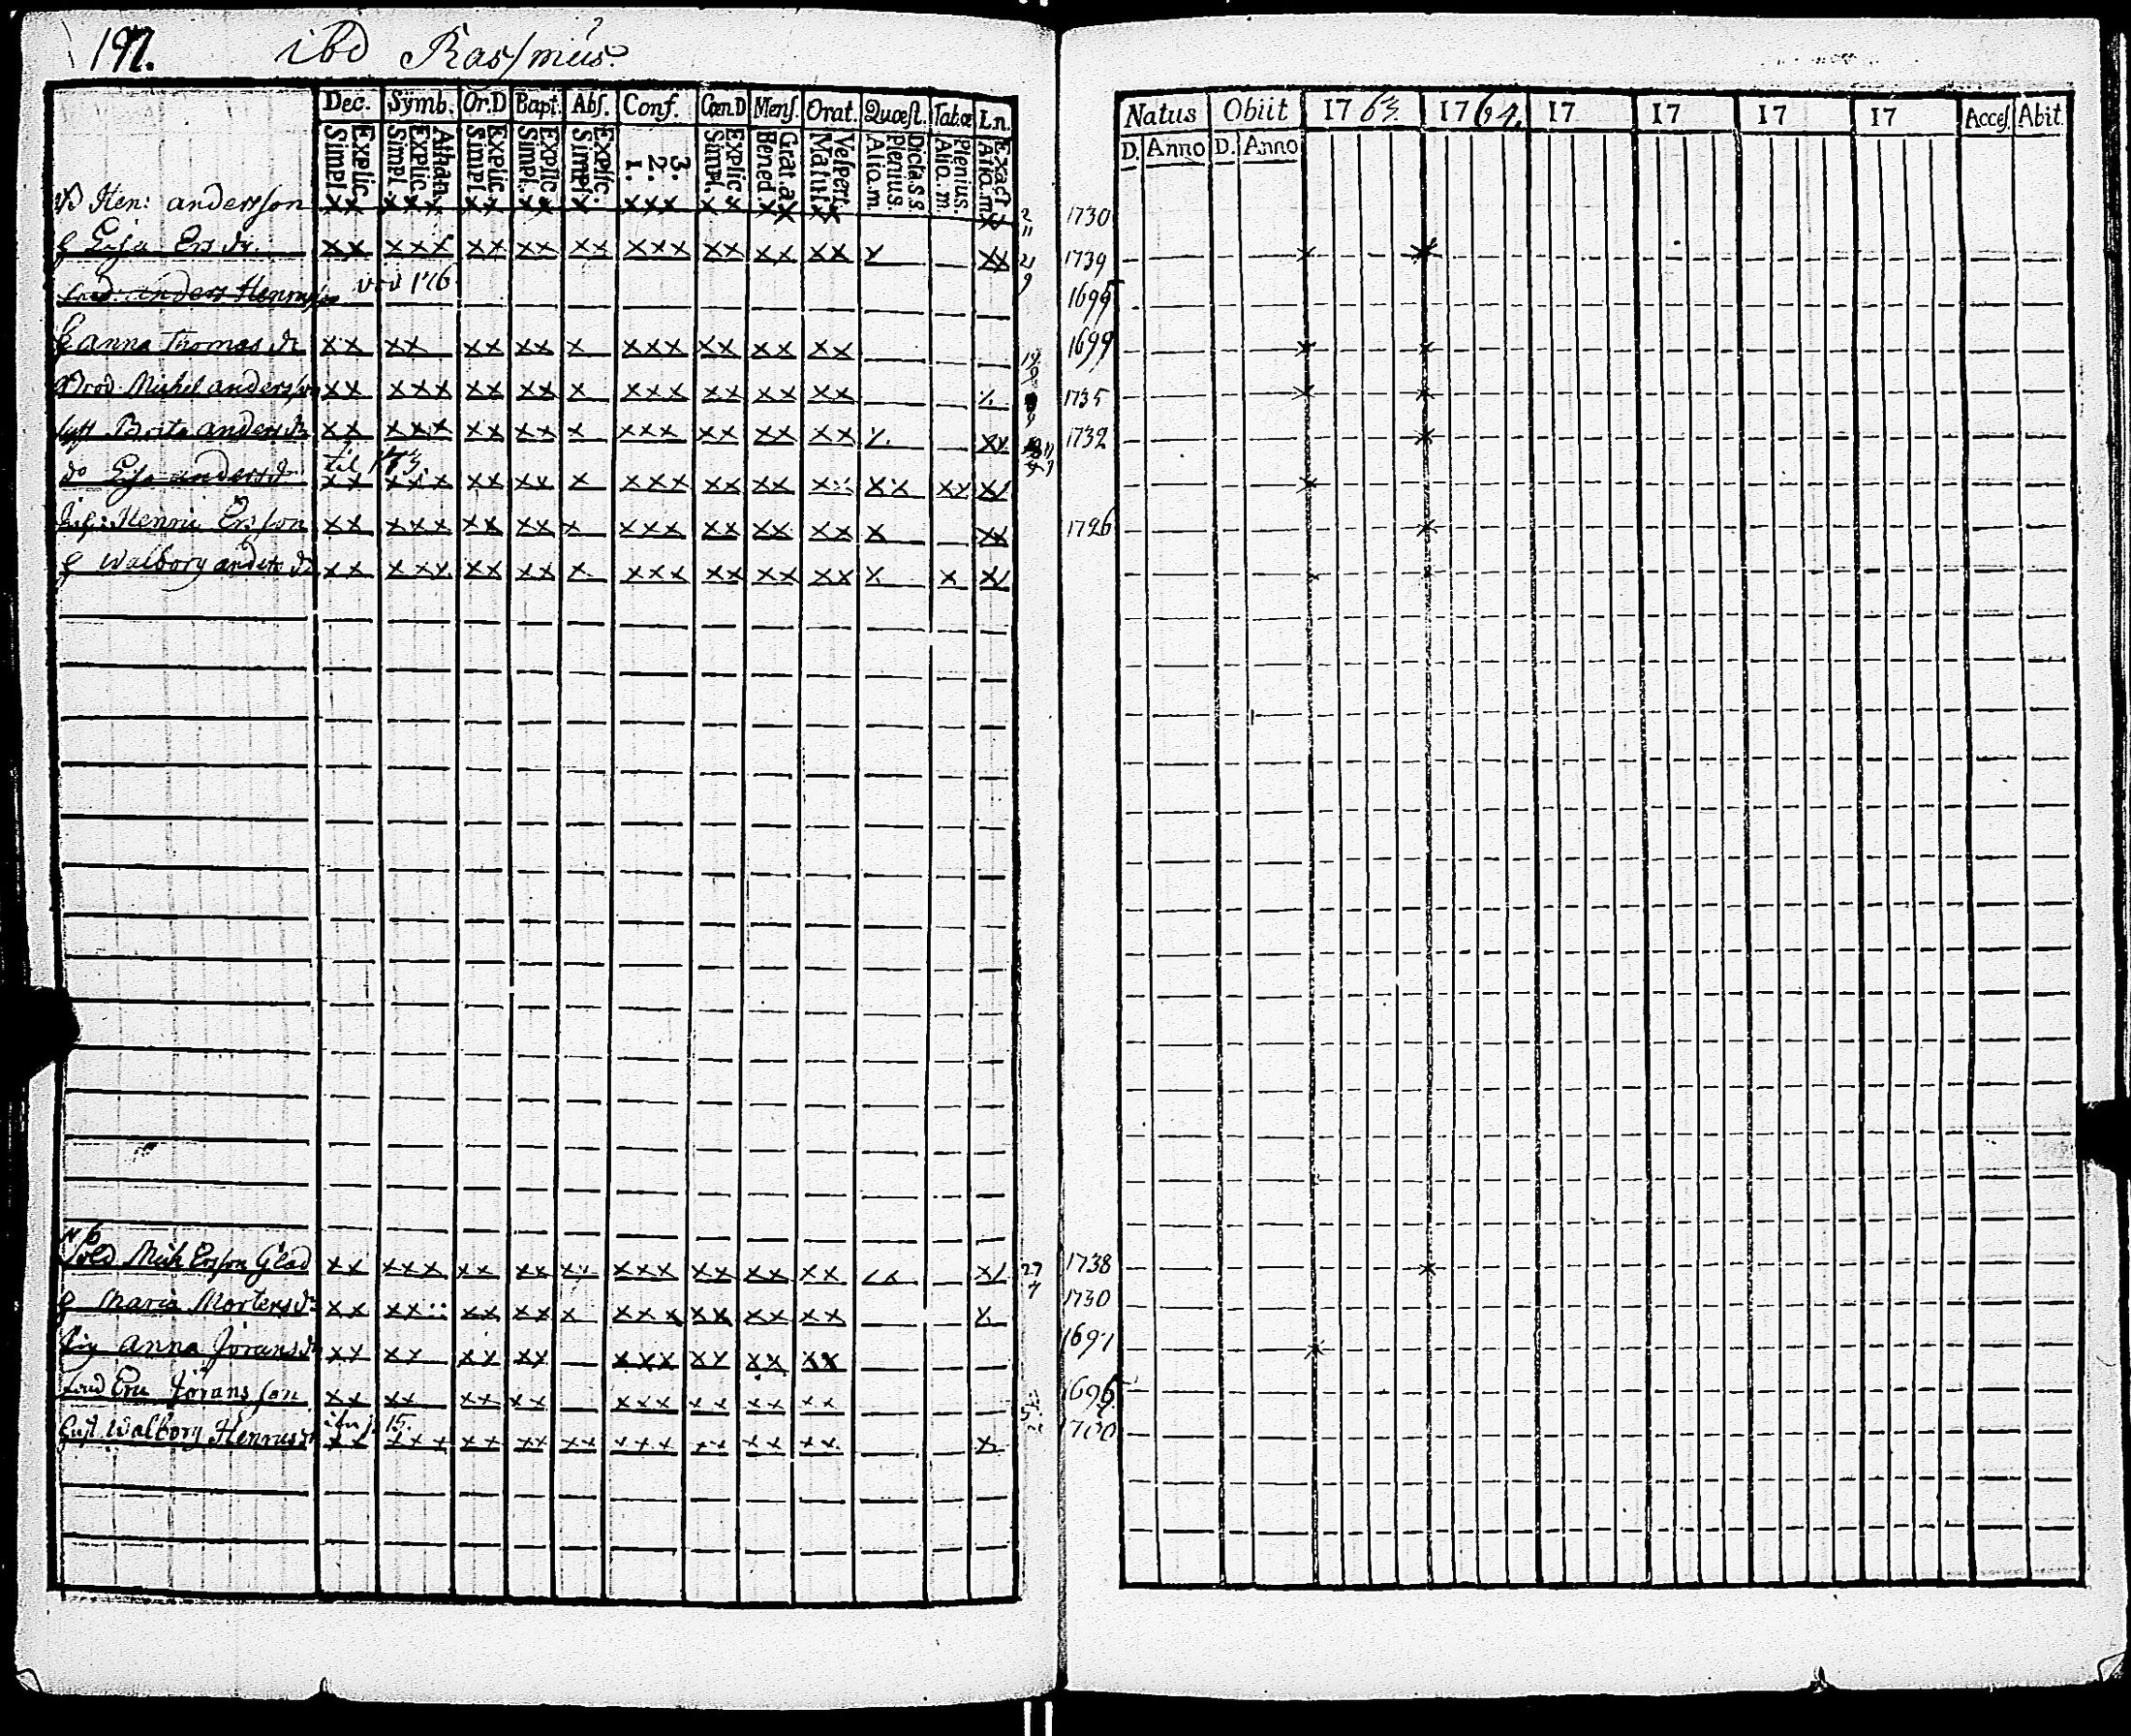 197. ibd Rasmus.
Dec. Symb. Or.D Bapt. Abs. Conf. Cæn.D Mens. Orat. Quæst. Tabæ Ln.
Simpl. Explic. Simpl. Explic. Athan. Simpl. Explic. Simpl. Explic. Simpl. Explic. 1. 2. 3. Simpl. Explic. Bened. Grat. a. Matut. Vespert. Alio. m. Plenius. Dicta. s. s. Alio. m. Plenius. Atio. m. Exact
Natus Obiit 17 63. 17 64. 17 17 17 17 Acces. Abit.
D. Anno D. Anno
Hen: andersson xx xxx xx xx x xxx xx xx xx 2 11 1730
Lisa Ers dr. xx xxx xx xx xx xxx xx xx xx x xx 21 9 1739
anders Henrics 176 1695
anna Thomas dr xx xx xx xx x xxx xx xx xx 1699
Brod. Michel andersson xx xxx xx xx x xxx xx xx xx 1735
syst Brita anders dr xx xxx xx xx x xxx xx xx xx 1732
til 173
do Lisa anders dr xx xxx xx xx x xxx xx xx
Henric Ersson xx xxx xx xx x xxx xx xx xx x xx 1726
Walborg anders dr xx xxx xx xx x xxx xx xx xx x x
N 6
Sold Mich Ersson Glad xx xxx xx xx xxx xx xx xx 27 4 1738
Maria Mortens dr xx xx xx x xxx xx xx xx x 1730
anna Jörans dr xx xx xx xx xxx xx xx xx 1697
Eric Jöransson xx xx xx xx xxx xx xx xx 1696
15.
Walborg Henrics dr xx xxx xx xx xx xxx xx xx xx x 1700